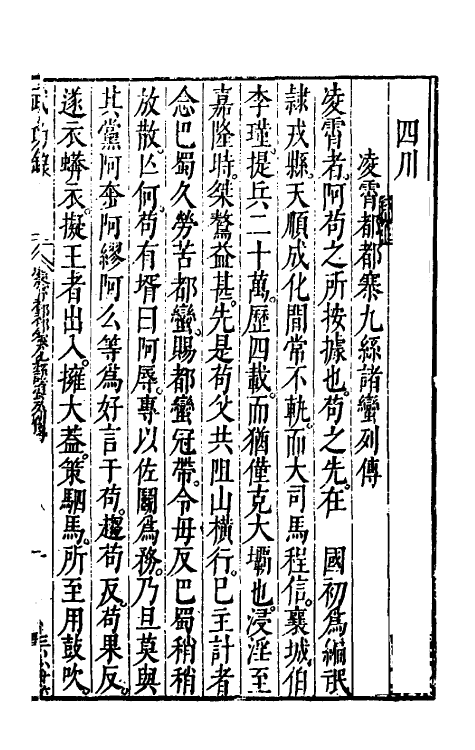 四川
凌霄都都寨九絲諸蠻列傳
凌霄者阿苟之所按據也苟之先在　國初為編氓
隷戎縣天順成化間常不軌而大司馬程信襄城伯
李瑾提兵二十萬歷四載而猶僅克大壩也浸淫至
嘉隆時桀驁益甚先是苟父共阻山橫行已主計者
念巴蜀久勞苦都蠻賜都蠻冠帶令毋反巴蜀稍稍
放散亡何苟有壻曰阿辱專以佐鬬為務乃旦莫與
其黨阿奎阿繆阿么等為好言于苟趣苟反苟果反
遂衣蟒衣擬王者出入擁大蓋策駟馬所至用鼓吹
武功錄